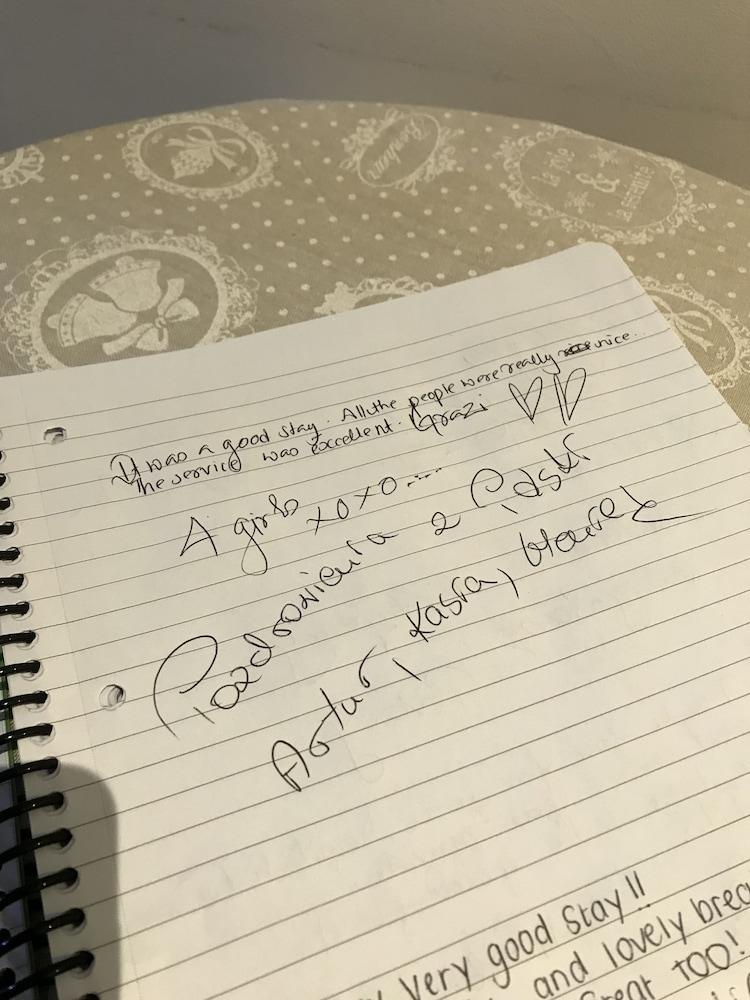 Bonheur
la joie
&
la sérénité
It was a good stay. All the people were really nice...
the service was excellent. Grazi ♡♡
A girls xoxo....
Pozdrowienia z Polski
Artur, Kasia,
very good stay!!
and lovely
great TOO!